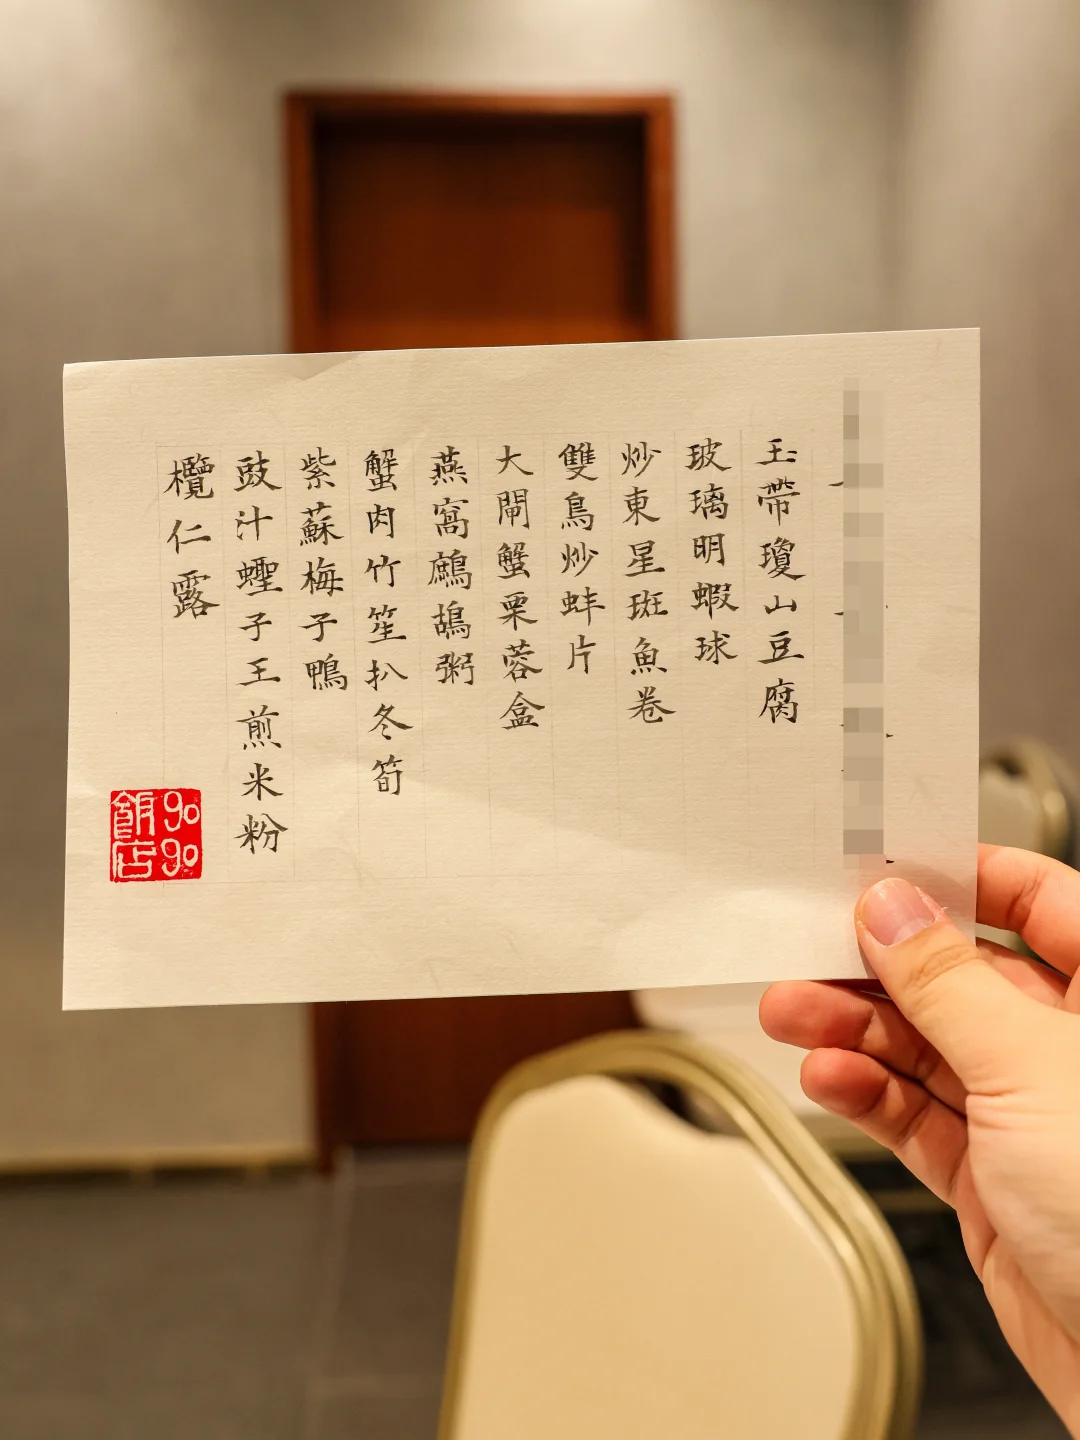 玉帶瓊山豆腐
玻璃明蝦球
炒東星斑魚卷
雙鳥炒蚌片
大閘蟹栗蓉盒
燕窩鷓鴣粥
蟹肉竹笙扒冬筍
紫蘇梅子鴨
豉汁蟶子王煎米粉
欖仁露
9090
飯店